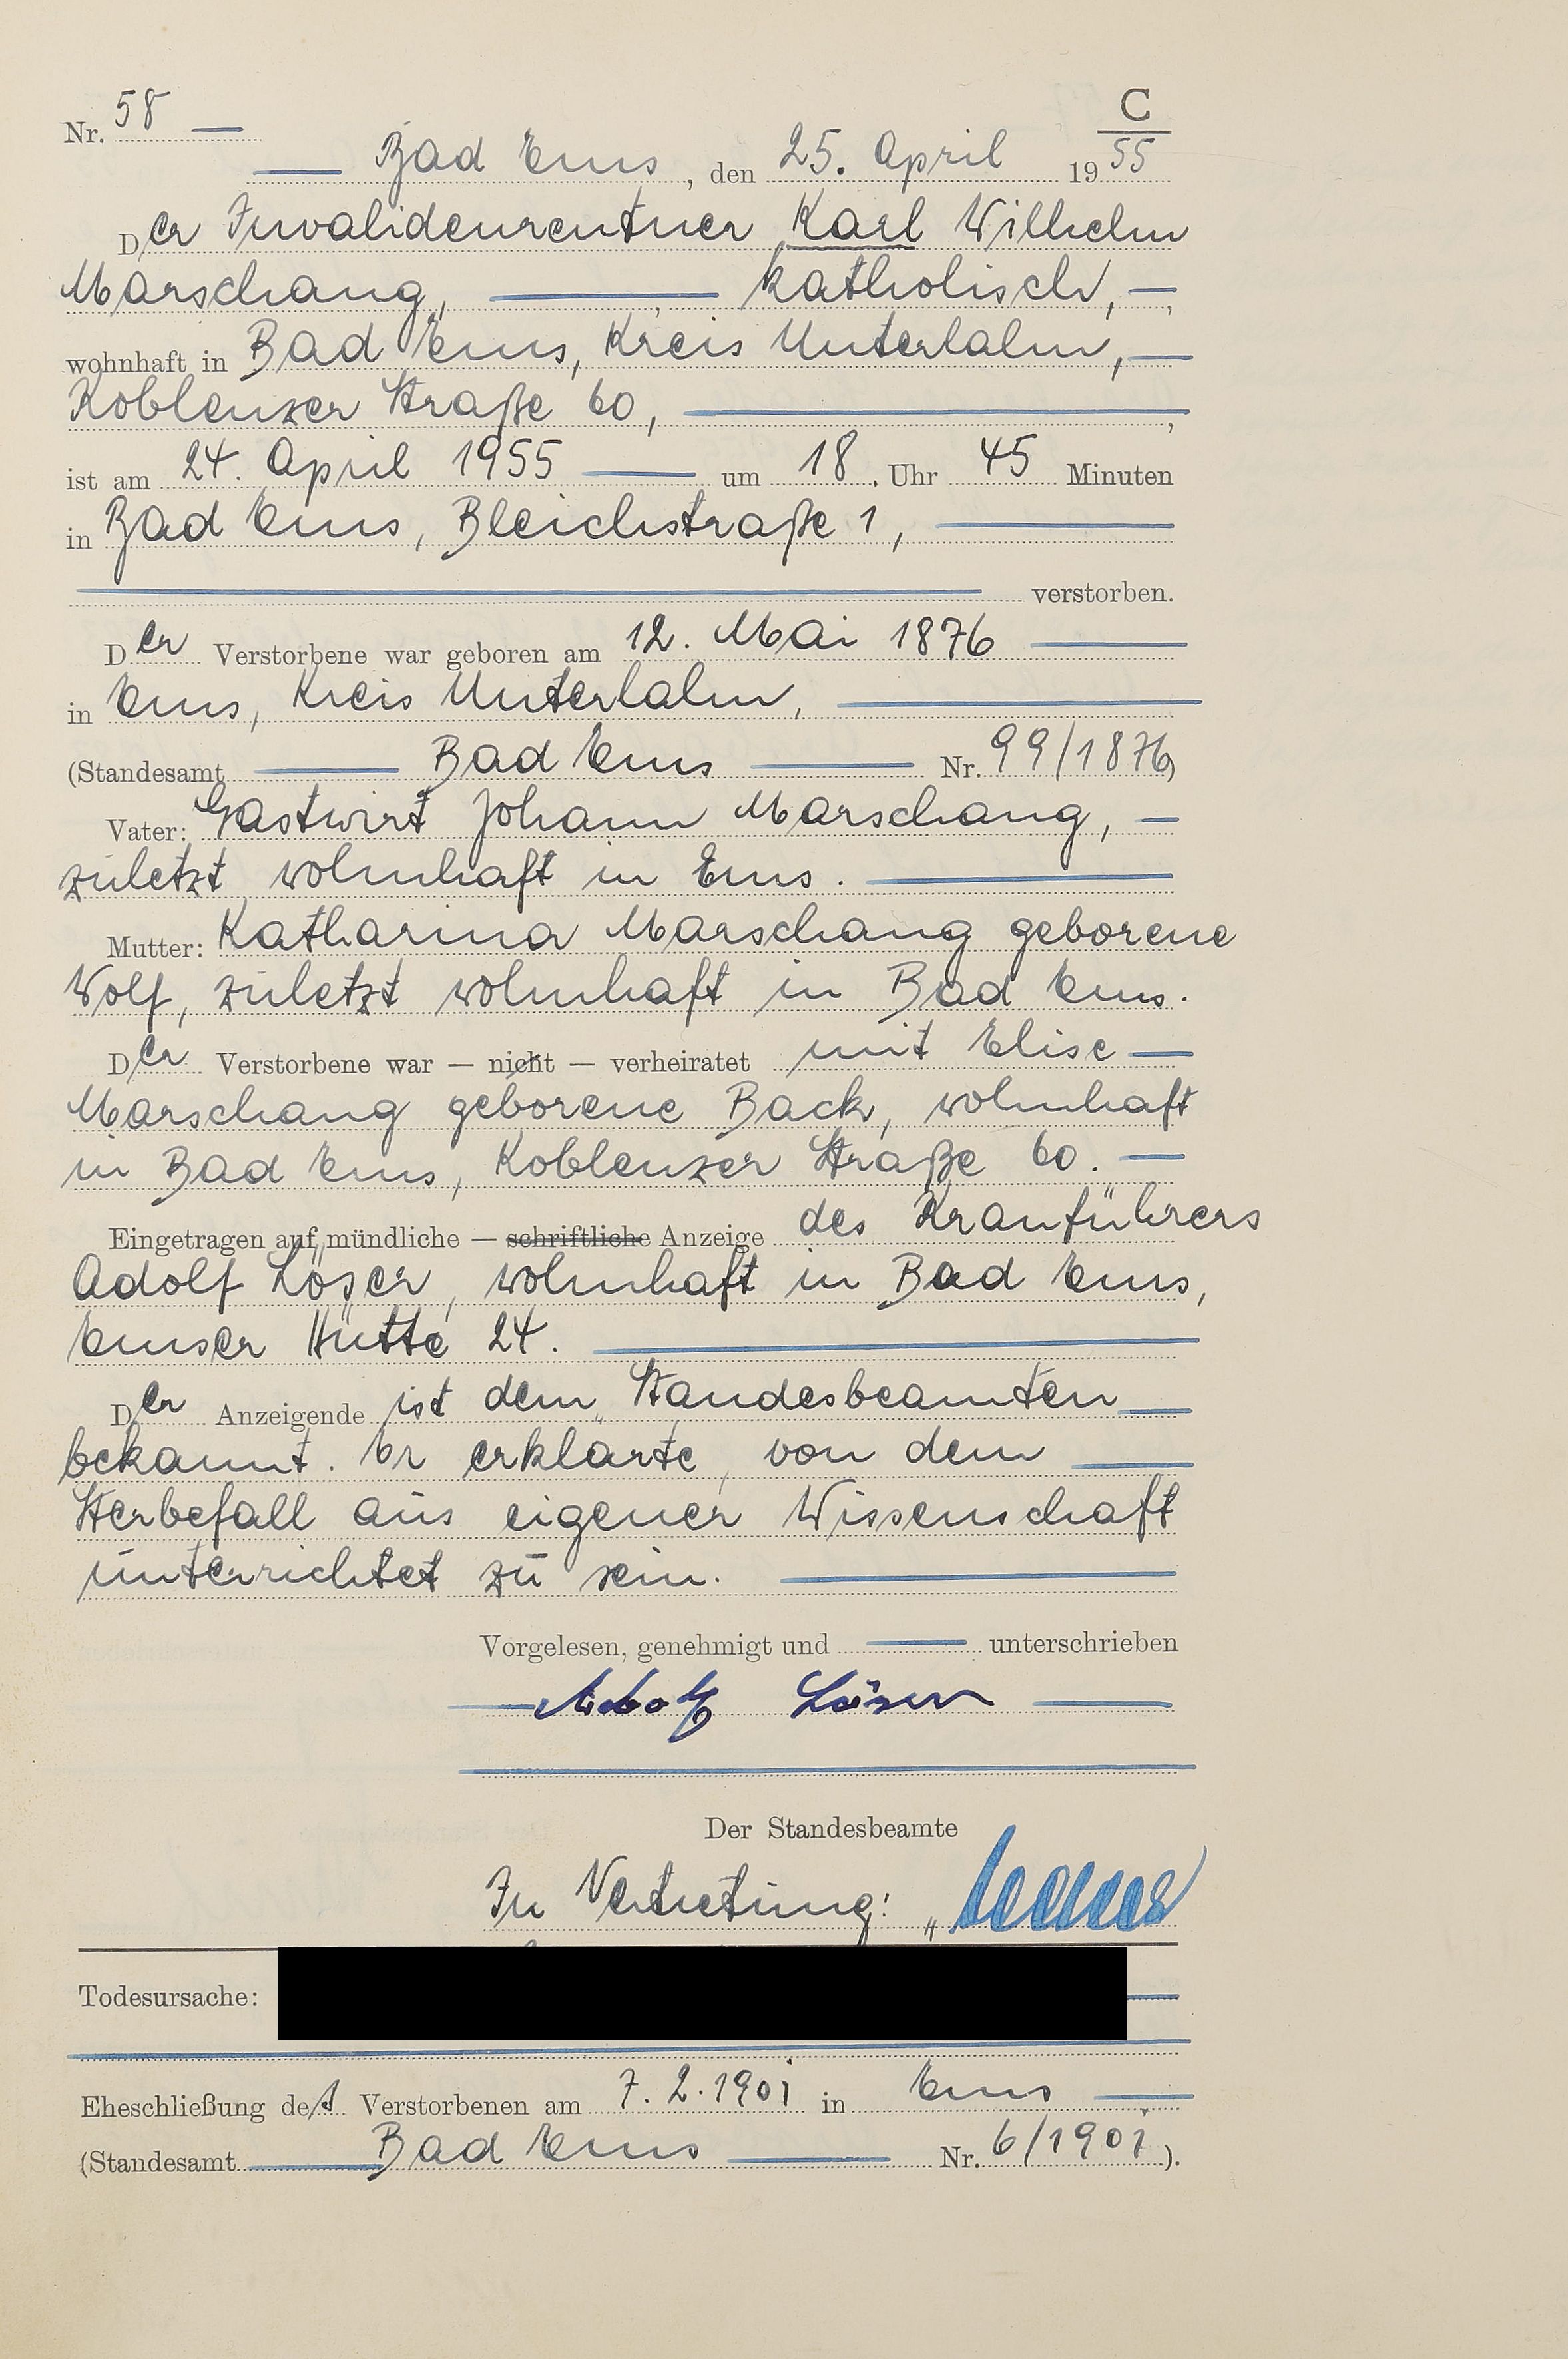 C
Nr. 58 —
— Bad Ems, den 25. April 1955
Der Invalidenrentner Karl Wilhelm
Marschang, — , katholisch, —,
wohnhaft in Bad Ems, Kreis Unterlahn, —
Koblenzer Straße 60, — ,
ist am 24. April 1955 — um 18 Uhr 45 Minuten
in Bad Ems, Bleichstraße 1, —
— verstorben.
Der Verstorbene war geboren am 12. Mai 1876 —
in Ems, Kreis Unterlahn, —
(Standesamt — Bad Ems — Nr. 99/1876)
Vater: Gastwirt Johann Marschang, —
zuletzt wohnhaft in Ems. —
Mutter: Katharina Marschang geborene
Wolf, zuletzt wohnhaft in Bad Ems.
Der Verstorbene war — nicht — verheiratet mit Elise —
Marschang geborene Back, wohnhaft
in Bad Ems, Koblenzer Straße 60. —
Eingetragen auf mündliche — schriftliche Anzeige des Kranführers
Adolf Löser, wohnhaft in Bad Ems,
Emser Hütte 24. —
Der Anzeigende ist dem Standesbeamten —
bekannt. Er erklärte, von dem —
Sterbefall aus eigener Wissenschaft
unterrichtet zu sein. —
Vorgelesen, genehmigt und — unterschrieben
— Adolf Löser —
Der Standesbeamte
In Vertretung:
Todesursache:
Eheschließung des Verstorbenen am 7.2.1901 in Ems —
(Standesamt — Bad Ems — Nr. 6/1901).